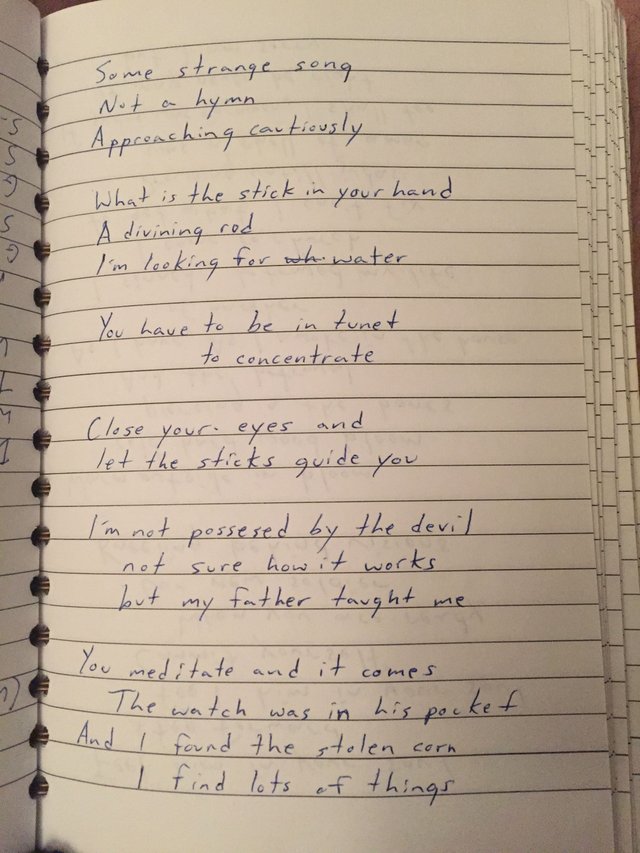 Some strange song
Not a hymn
Approaching cautiously
What is the stick in your hand
A divining rod
I'm looking for wh. water
You have to be in tunet
to concentrate
Close your. eyes and
let the sticks guide you
I'm not possesed by the devil
not sure how it works
but my father taught me
You meditate and it comes
The watch was in his pocket
And I found the stolen corn
I find lots of things